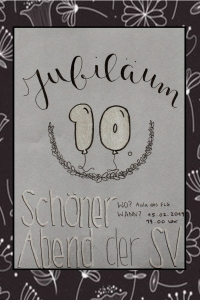 Jubiläum
10.
Schöner
WO? Aula des
WANN? 15.02.2019
19.00 Uhr
Abend der SV